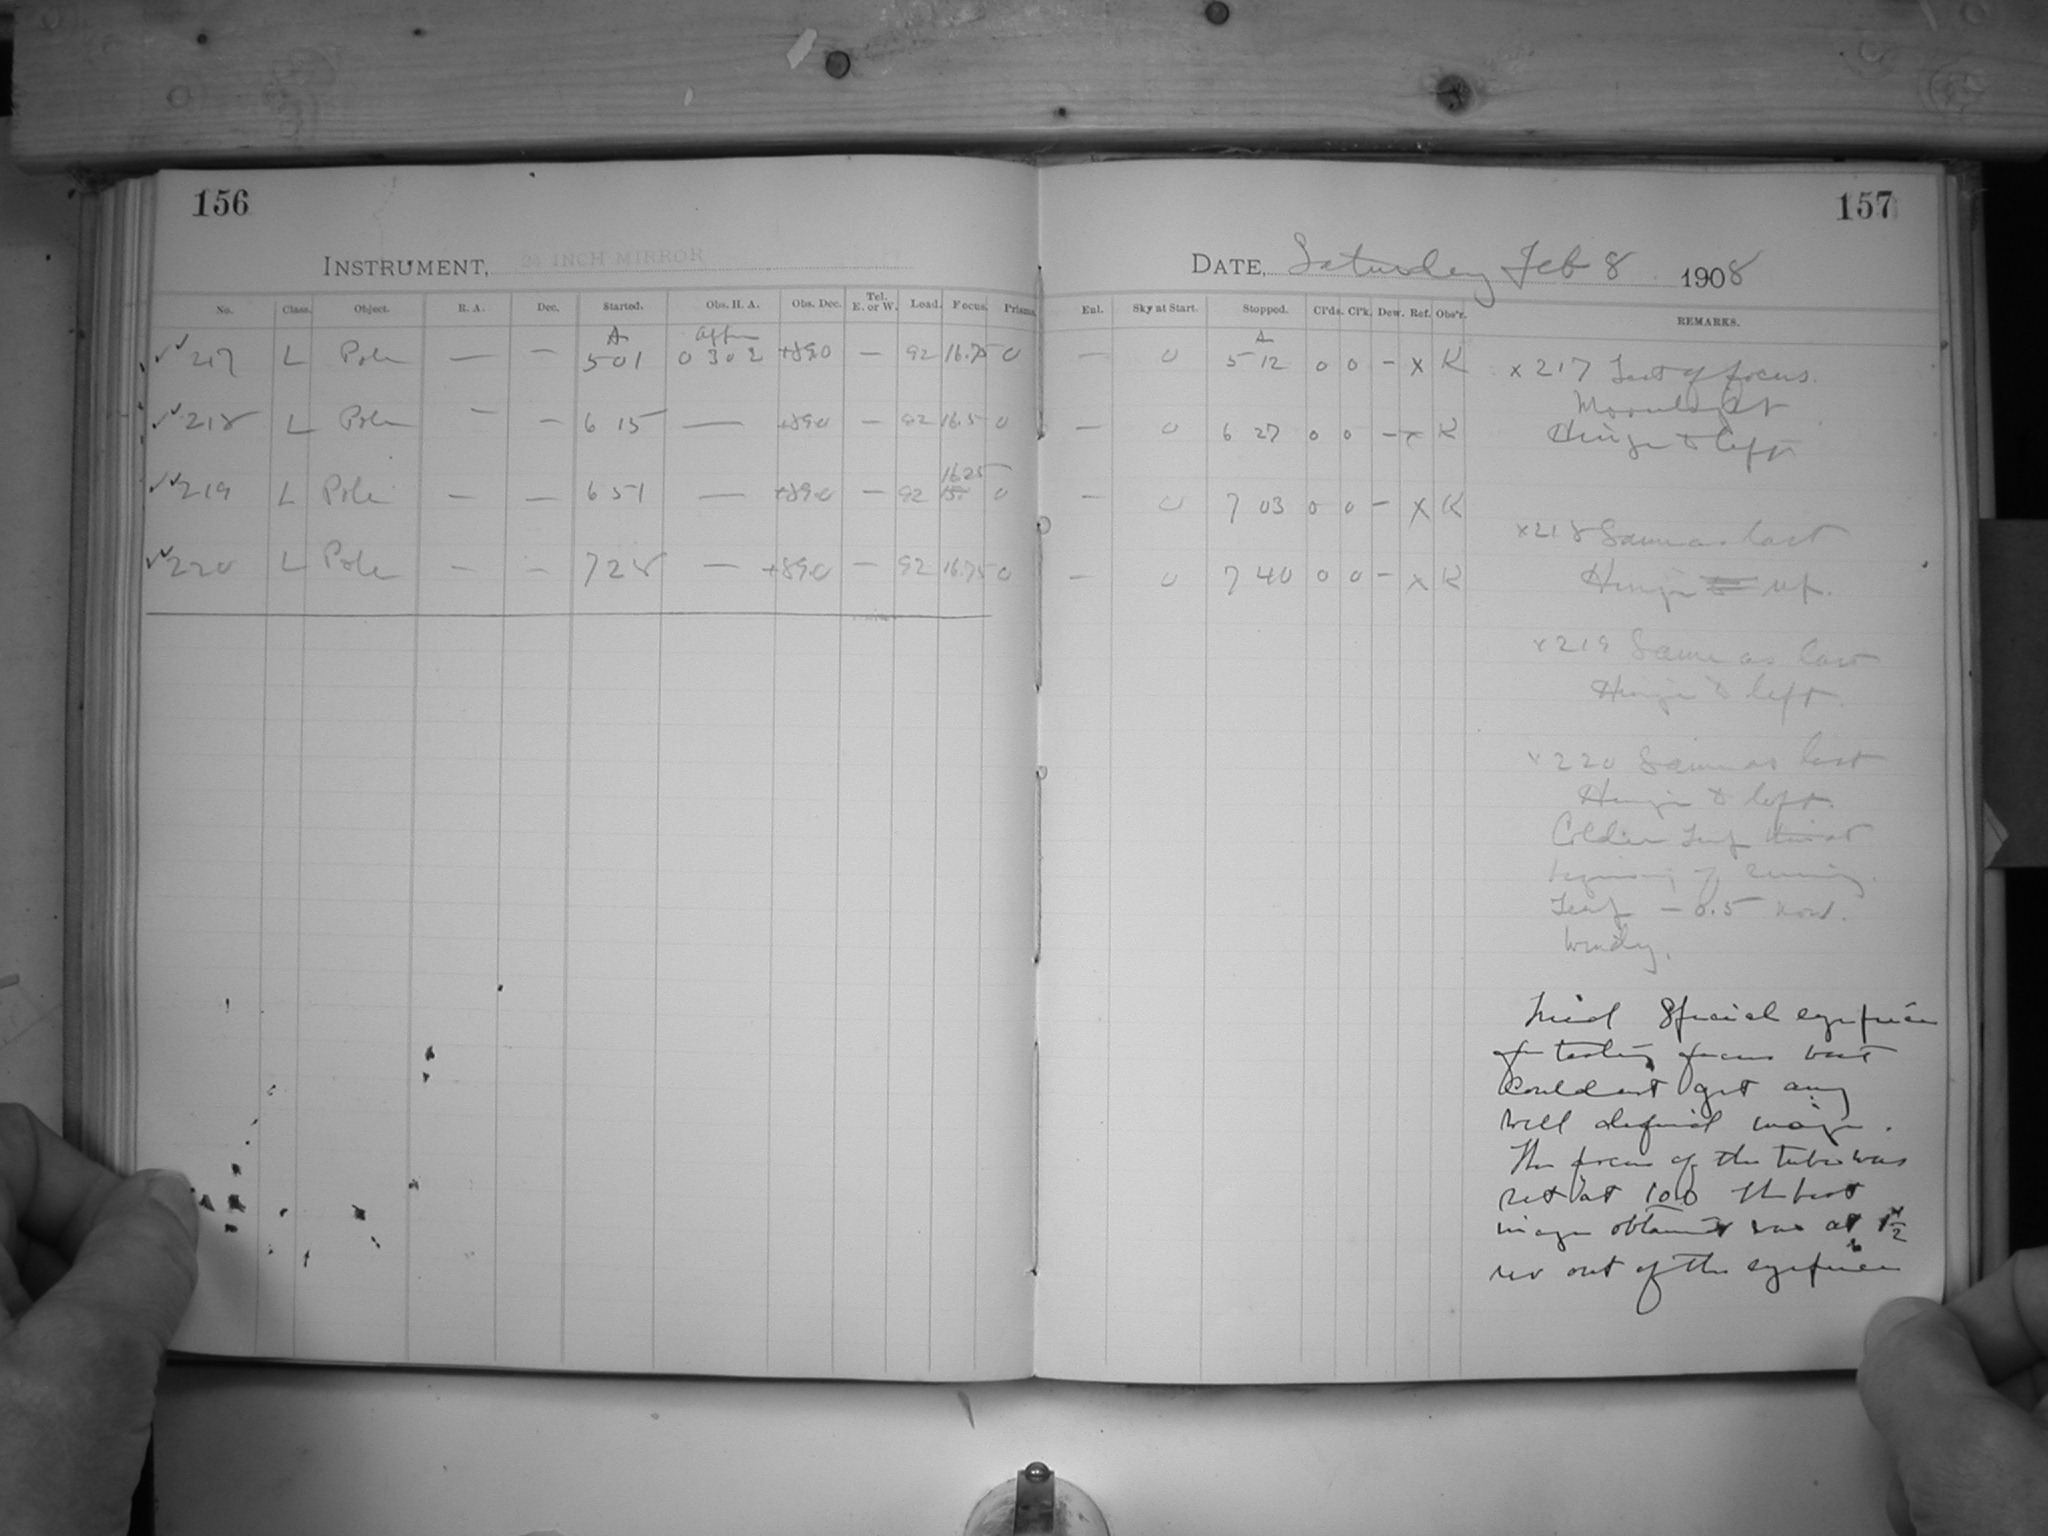 156
INSTRUMENT, 24 INCH MIRROR
No. Class. Object. R. A. Dec. Started. Obs. H. A. Obs. Dec. Tel. E. or W. Load. Focus. Prisms.
A
✓✓ 217 L Pole — — 5 01 0 30 2 +890 — 92 16.75 0
✓✓ 218 L Pole — — 6 15 — +890 — 92 16.5 0
16.25
✓✓ 219 L Pole — — 6 51 — +890 — 92 0
✓✓ 220 L Pole — — 7 28 — +890 — 92 16.75 0
157
DATE, Saturday Feb 8 1908
Enl. Sky at Start. Stopped. Cl'ds. Cl'k. Dew. Ref. Obs'r. REMARKS.
A
— 0 5 12 0 0 — x K
— 0 6 27 0 0 — x K
— 0 7 03 0 0 — x K
— 0 7 40 0 0 — x K
x 217 Test of focus.
Moonlight
Hinge to left
x 218 Same as last
Hinge to up.
x 219 Same as last
Hinge to left.
x 220 Same as last
Hinge to left.
Colder Temp than at
beginning of evening.
Temp — 0.5 now.
Windy.
Tried Special eyepiece
for testing focus but
could not get any
well defined image.
The focus of the tube was
set at 100 the best
image obtained was at 1/2
rev out of the eyepiece